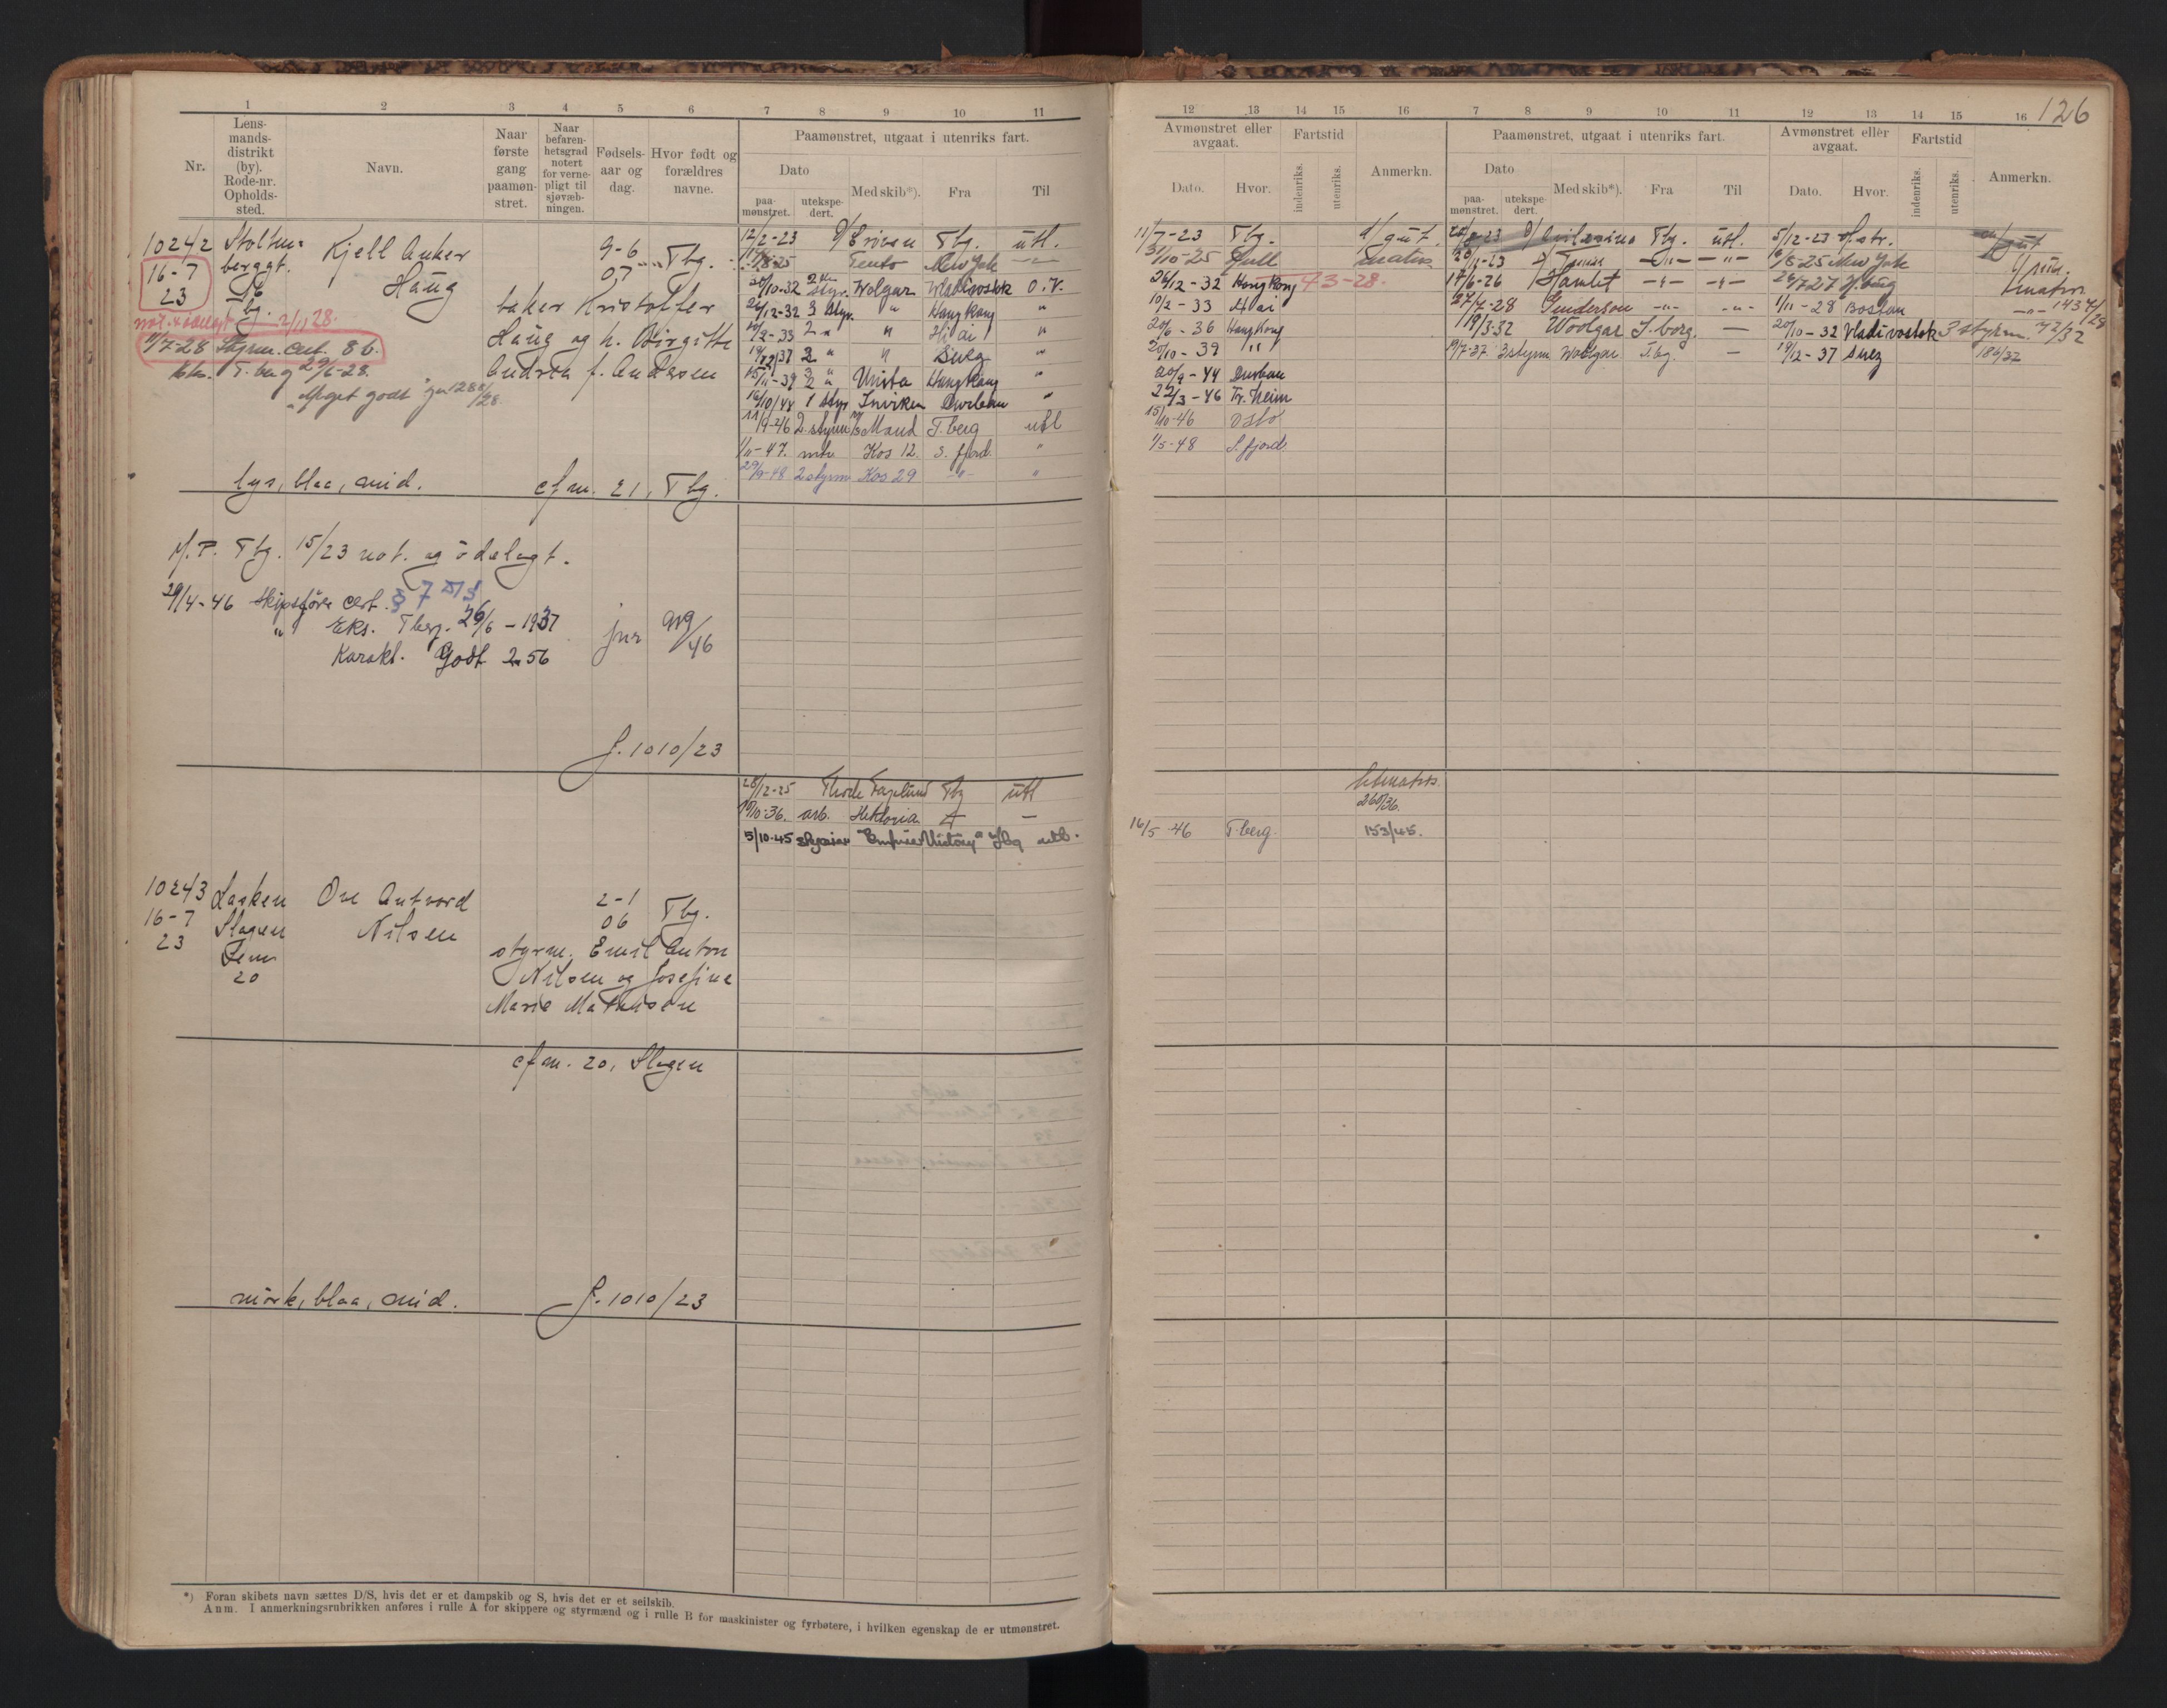 126
1 2 3 4 5 6 7 8 9 10 11
Nr.
Lens-
mands-
distrikt
(by).
Rode-nr.
Opholds-
sted.
Navn.
Naar
første
gang
paamøn-
stret.
Naar
befaren-
hetsgrad
notert
for verne-
pligt til
sjøvæb-
ningen.
Fødsels-
aar og
dag.
Hvor født og
forældres
navne.
Paamønstret, utgaat i utenriks fart.
Dato
paa-
mønstret.
utekspe-
dert.
Med skib*).
Fra
Til
12 13 14 15 16 7 8 9 10 11 12 13 14 15 16
Avmønstret eller
avgaat.
Dato.
Hvor.
Fartstid
indenriks.
utenriks.
Anmerkn.
Paamønstret, utgaat i utenriks fart.
Dato
paa-
mønstret.
utekspe-
dert.
Med skib*).
Fra
Til
Avmønstret eller
avgaat.
Dato.
Hvor.
Fartstid
indenriks.
utenriks.
Anmerkn.
10242
16-7
23
Stolten=
berggt.
16
Tbg.
Kjell Anker
Haug
9-6
07
Tbg.
baker Kristoffer
Haug og h. Birgitte
Andrea f. Andersen
not. & ødelagt 2/11 28.
11/7-28 Styrm. Cert. 86.
Eks. T.berg 29/6-28.
"Meget godt"
lys, blaa, mid.
efm. 21, Tbg.
M.P. Tbg. 15/23 not. og ødelagt.
29/4-46 Skipsfører cert. § 7
" Eks. Tberg. 26/6-1937
Karakt. Godt 2.56
jnr 919/46
J. 1010/23
12/2-23 Tbg. utl.
New York
20/10-32 2 styr. Wolgar Wladivostok O.V.
26/12-32 3 styr. " Hongkong "
10/2-33 2 " " H.ai "
19/12 37 2 " " Suez "
15/11-39 2 " Unita Hongkong "
16/10/44 1 styr Inviken Durban "
11/9-46 2. styrm Maud T.berg utl
1/11-47. mtr. Kos 12. S. fjord. "
29/9-48 2 styrm Kos 29 -"- "
11/7-23 Tbg. d/gut.
31/10-25 Hull matros
26/12-32 Hongkong 43-28.
10/2-33 H.ai
20/6-36 Hongkong
20/10-39 "
20/9-44 Durban
22/3-46 Tr. heim
15/10-46 Oslo
1/5-48 S. fjord
Tbg. utl. 5/12-23
New York
17/6-26 Hamlet -"- -"- 26/7 27 H.burg matros
27/7-28 Gunderson -"- -"- 1/11-28 Boston -"- 1437/28
19/3-32 Woolgar T.berg. — 20/10-32 Vladivostok 3 styrm. 72/32
19/7-37 3 styrm Woolgar T.bg. — 19/12-37 Suez 186/37
28/12-25 Thode Fagelund Tbg utl
10/10-36. arb. Hektoria —
5/10-45 "Empire Victory" utl.
Letmatros.
260/36.
16/5-46 T.berg. 153/45.
10243
16-7
23
Basken
Slagen
Sem
20
Ove Antvord
Nilsen
2-1
06
Tbg.
styrm. Emil Anton
Nilsen og Josefine
Marie Mathisen
efm. 20, Slagen
mörk, blaa, mid.
J. 1010/23
*) Foran skibets navn sættes D/S, hvis det er et dampskib og S, hvis det er et seilskib.
Anm. I anmerkningsrubrikken anføres i rulle A for skippere og styrmænd og i rulle B for maskinister og fyrbøtere, i hvilken egenskap de er utmønstret.